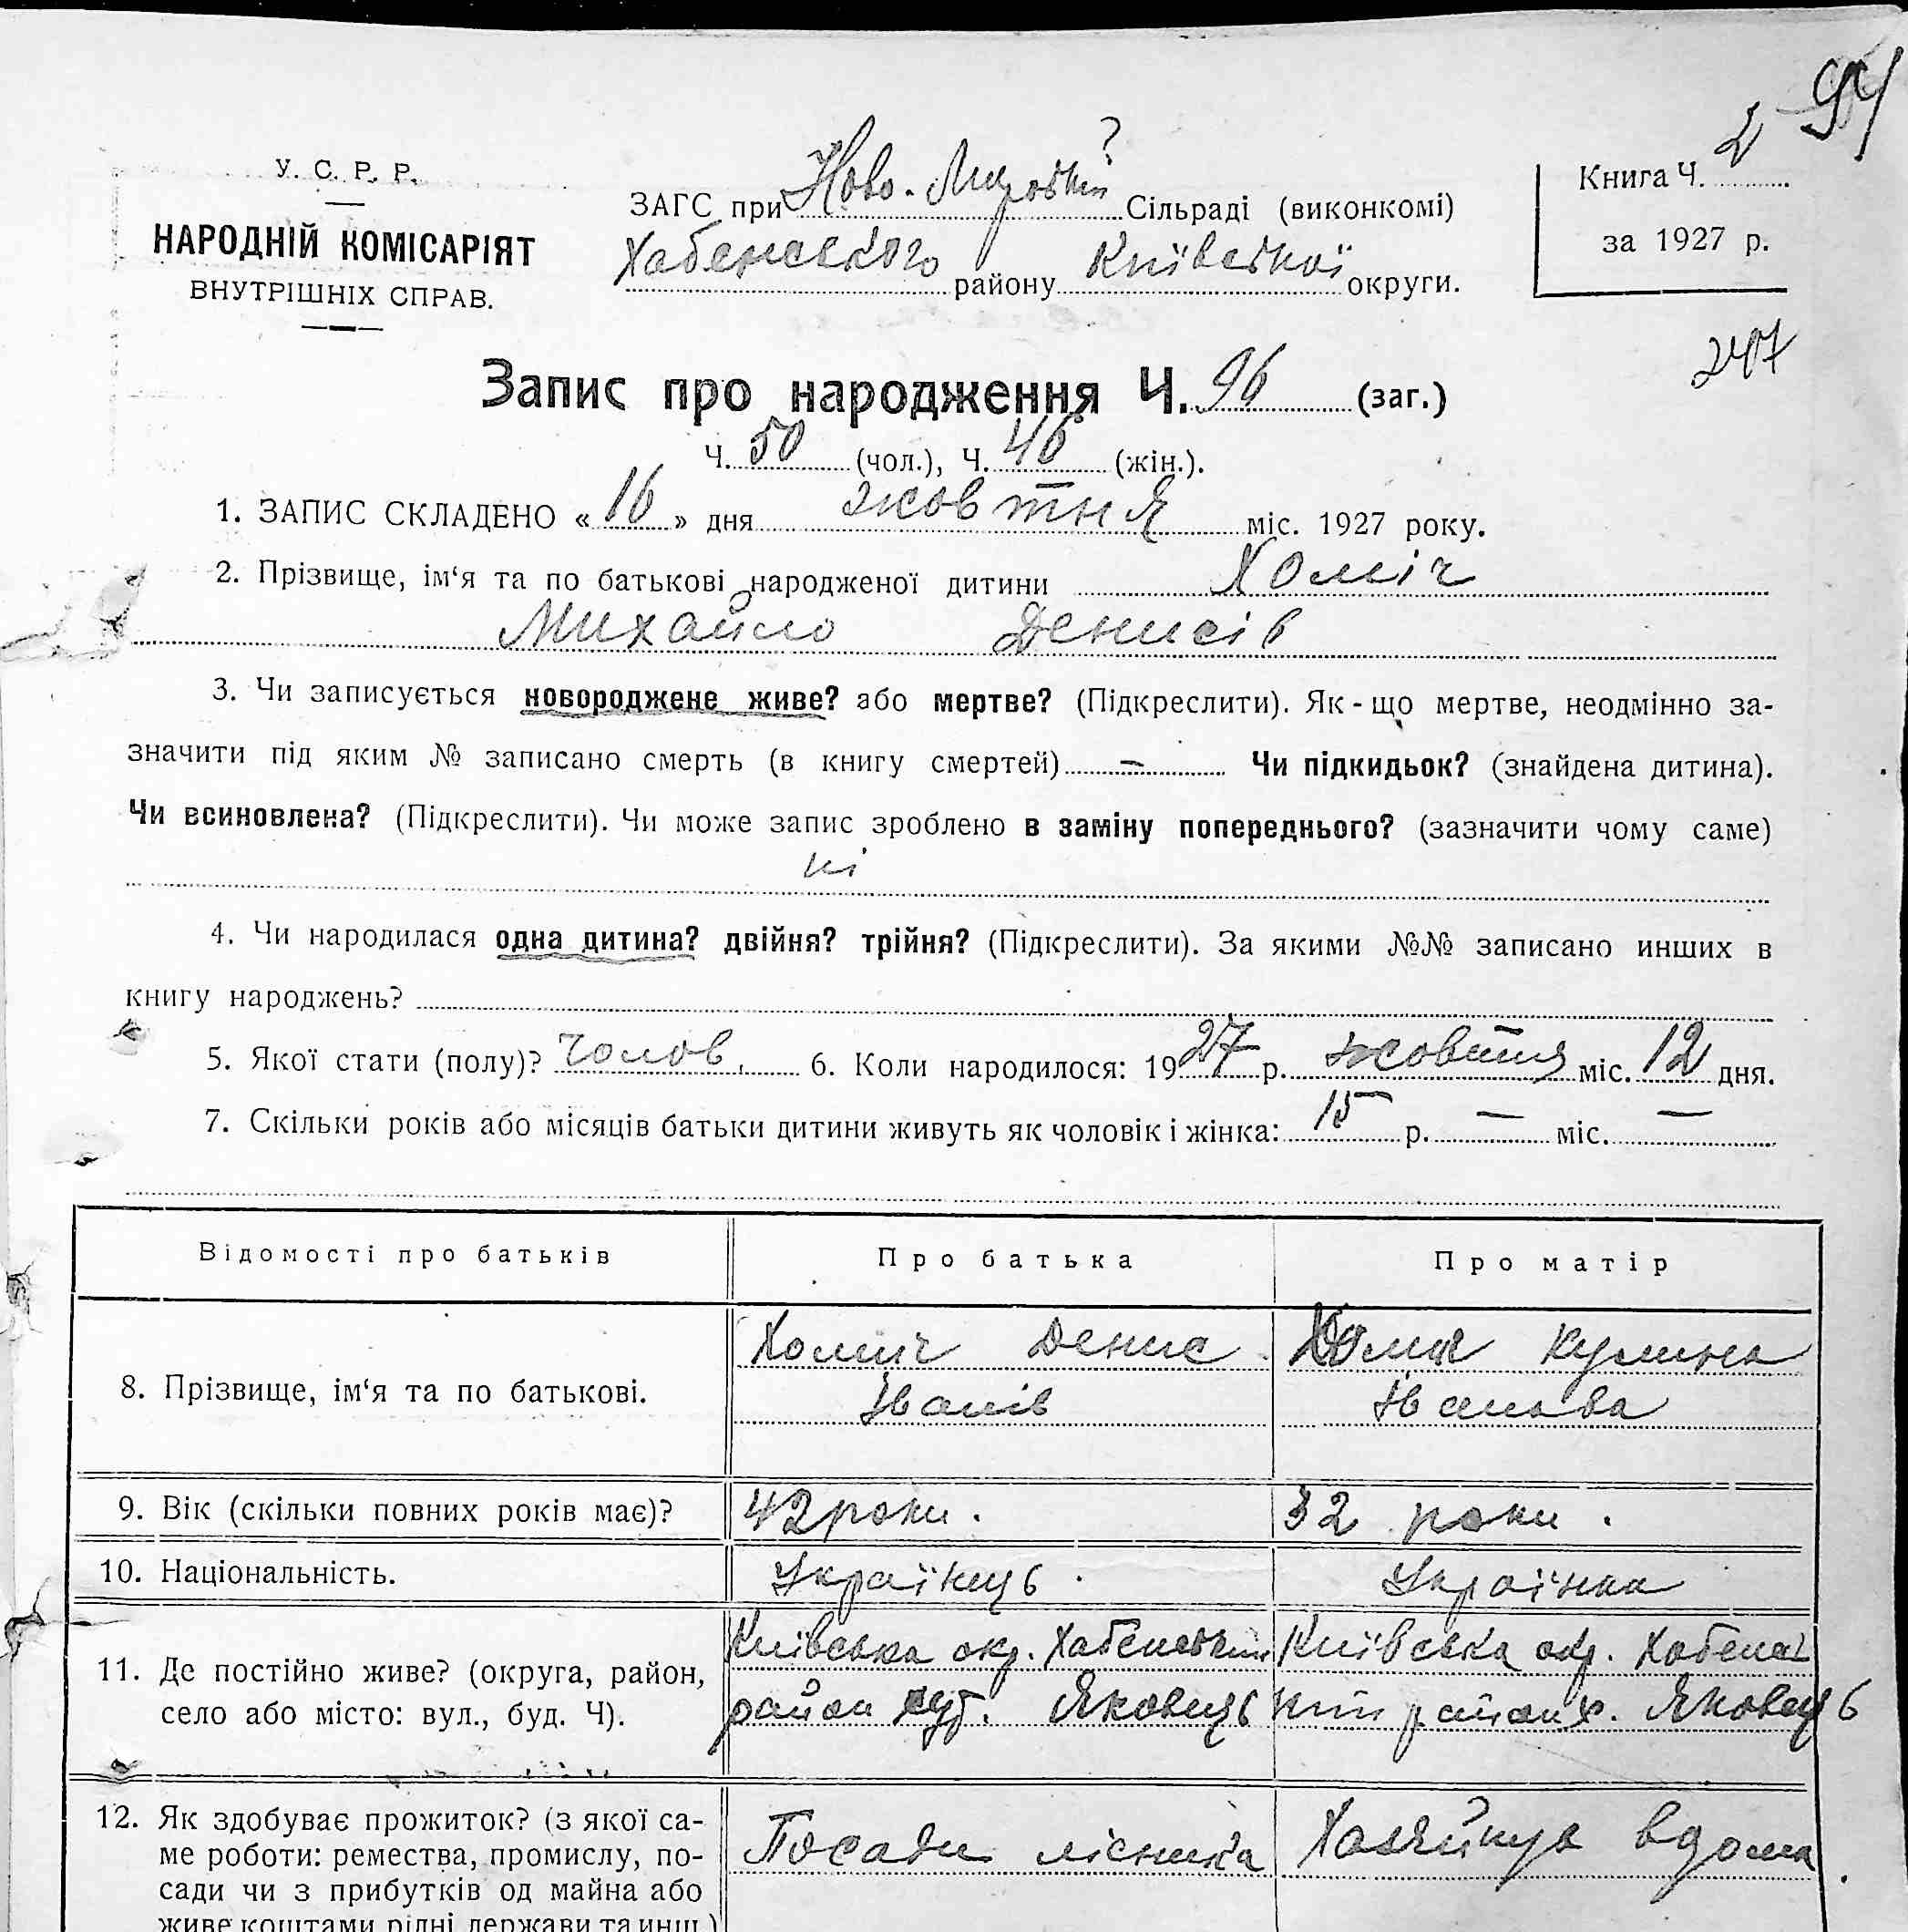 94
У. С. Р. Р.
НАРОДНІЙ КОМІСАРІЯТ
ВНУТРІШНІХ СПРАВ.
ЗАГС при Ново-Мирській ? Сільраді (виконкомі)
Хабенського району Київської округи.
Книга Ч. 2
за 1927 р.
247
Запис про народження Ч. 96 (заг.)
Ч. 50 (чол.), Ч. 46 (жін.).
1. ЗАПИС СКЛАДЕНО « 16 » дня жовтня міс. 1927 року.
2. Прізвище, ім‘я та по батькові народженої дитини Хоміч
Михайло Денисів
3. Чи записується новороджене живе? або мертве? (Підкреслити). Як-що мертве, неодмінно за-
значити під яким № записано смерть (в книгу смертей) — Чи підкидьок? (знайдена дитина).
Чи всиновлена? (Підкреслити). Чи може запис зроблено в заміну попереднього? (зазначити чому саме)
ні
4. Чи народилася одна дитина? двійня? трійня? (Підкреслити). За якими №№ записано инших в
книгу народжень?
5. Якої стати (полу)? Чолов. 6. Коли народилося: 1927 р. жовтня міс. 12 дня.
7. Скільки років або місяців батьки дитини живуть як чоловік і жінка: 15 р. — міс. —
Відомості про батьків Про батька Про матір
8. Прізвище, ім‘я та по батькові. Хомич Денис Хомич Кулина
Іванів Іванова
9. Вік (скільки повних років має)? 42 роки. 32 роки.
10. Національність. Українець. Українка
11. Де постійно живе? (округа, район,
село або місто: вул., буд. Ч).
Київська окр. Хабенський
район хут. Яковець
Київська окр. Хабенсь
кий район х. Яковець
12. Як здобуває прожиток? (з якої са-
ме роботи: ремества, промислу, по-
сади чи з прибутків од майна або
живе коштами рідні держави та инш.)
Посади лісника
Хазяйнує вдома